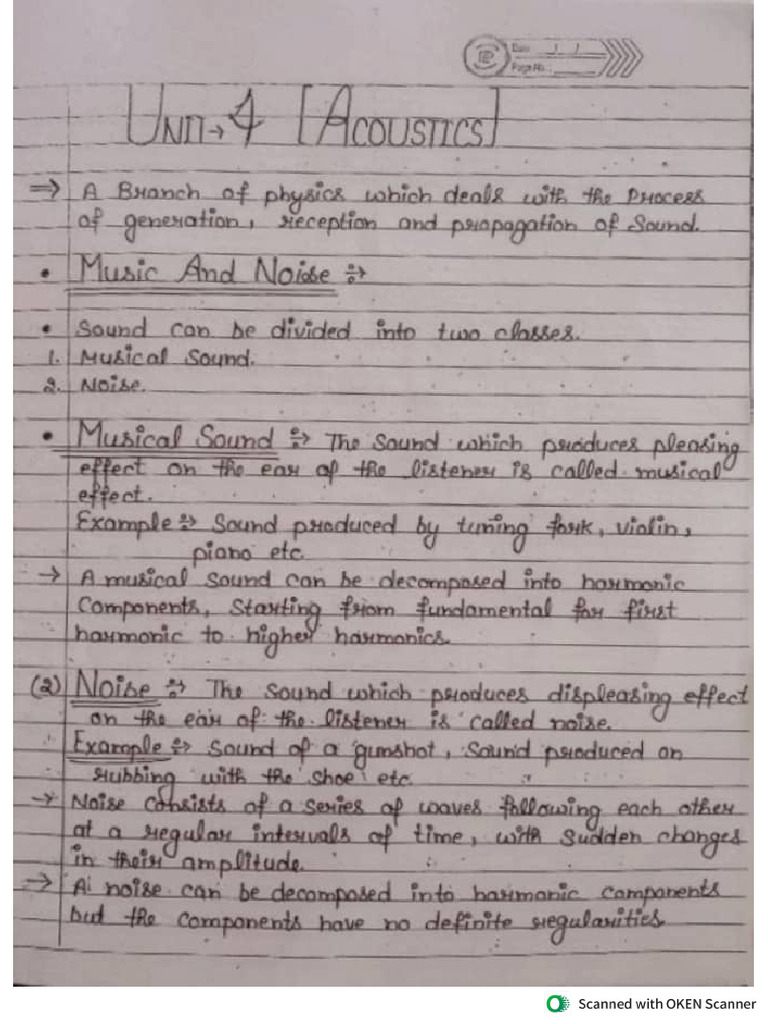 Date / /
Page No.:
UNIT→4 [ACOUSTICS]
⇒ A Branch of physics which deals with the Process
of generation, reception and propagation of Sound.
• Music And Noise :→
• Sound can be divided into two classes.
1. Musical Sound.
2. Noise.
• Musical Sound :→ The Sound which produces pleasing
effect on the ear of the listener is called musical
effect.
Example :→ Sound produced by tuning fork, violin,
piano etc.
→ A musical sound can be decomposed into harmonic
Components, Starting from fundamental for first
harmonic to higher harmonics.
(2) Noise :→ The Sound which produces displeasing effect
on the ear of the listener is called noise.
Example :→ Sound of a gunshot, Sound produced on
rubbing with the shoe etc.
→ Noise consists of a series of waves following each other
at a regular intervals of time, with sudden changes
in their amplitude.
→ A noise can be decomposed into harmonic components
but the components have no definite regularities
Scanned with OKEN Scanner